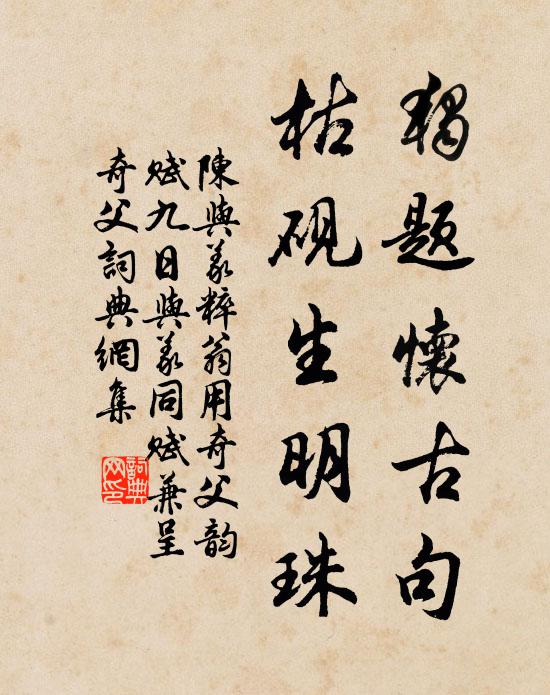 獨題懷古句
枯硯生明珠
陳與義粹翁用奇父韵
賦九日與義同賦兼呈
奇父詞典網集
詞典
网印